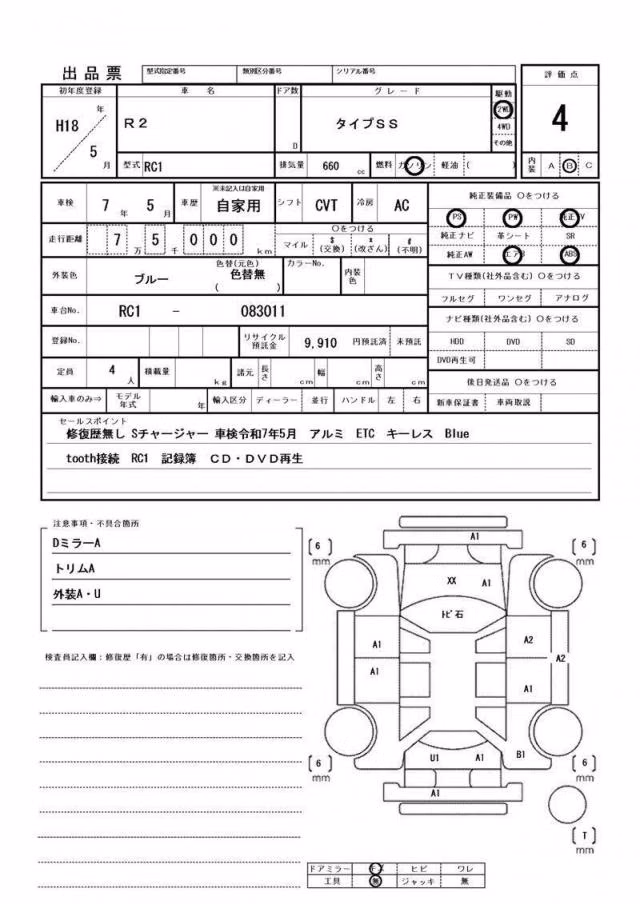 出品票 型式指定番号 類別区分番号 シリアル番号
初年度登録 車名 ドア数 グレード 駆動 評価点
H18 年 5 月 R2 D タイプSS 2WD 4WD その他 4
型式 RC1 排気量 660 cc 燃料 ガソリン 軽油 ( ) 内装 A B C
車検 7 年 5 月 車歴 ※未記入は自家用 自家用 シフト CVT 冷房 AC
走行距離 7 万 5 千 0 0 0 km
○をつける
マイル $ (交換) * (改ざん) # (不明)
外装色 ブルー 色替(元色) 色替無 ( ) カラーNo. 内装色
車台No. RC1 - 083011
登録No. リサイクル預託金 9,910 円預託済 未預託
定員 4 人 積載量 kg 諸元 長さ cm 幅 cm 高さ cm
輸入車のみ⇒ モデル年式 年 輸入区分 ディーラー 並行 ハンドル 左 右
純正装備品 ○をつける
PS PW 純正TV
純正ナビ 革シート SR
純正AW エアB ABS
TV種類(社外品含む) ○をつける
フルセグ ワンセグ アナログ
ナビ種類(社外品含む) ○をつける
HDD DVD SD
DVD再生可
後日発送品 ○をつける
新車保証書 車両取説
セールスポイント
修復歴無し Sチャージャー 車検令和7年5月 アルミ ETC キーレス Blue
tooth接続 RC1 記録簿 CD・DVD再生
注意事項・不具合箇所
DミラーA
トリムA
外装A・U
検査員記入欄:修復歴「有」の場合は修復箇所・交換箇所を記入
A1
6 mm 6 mm
XX A1
トビ石
A1 A2
A2
A1 A1
U1 A1 B1
6 mm 6 mm
A1
T mm
ドアミラー キズ ヒビ ワレ
工具 無 ジャッキ 無